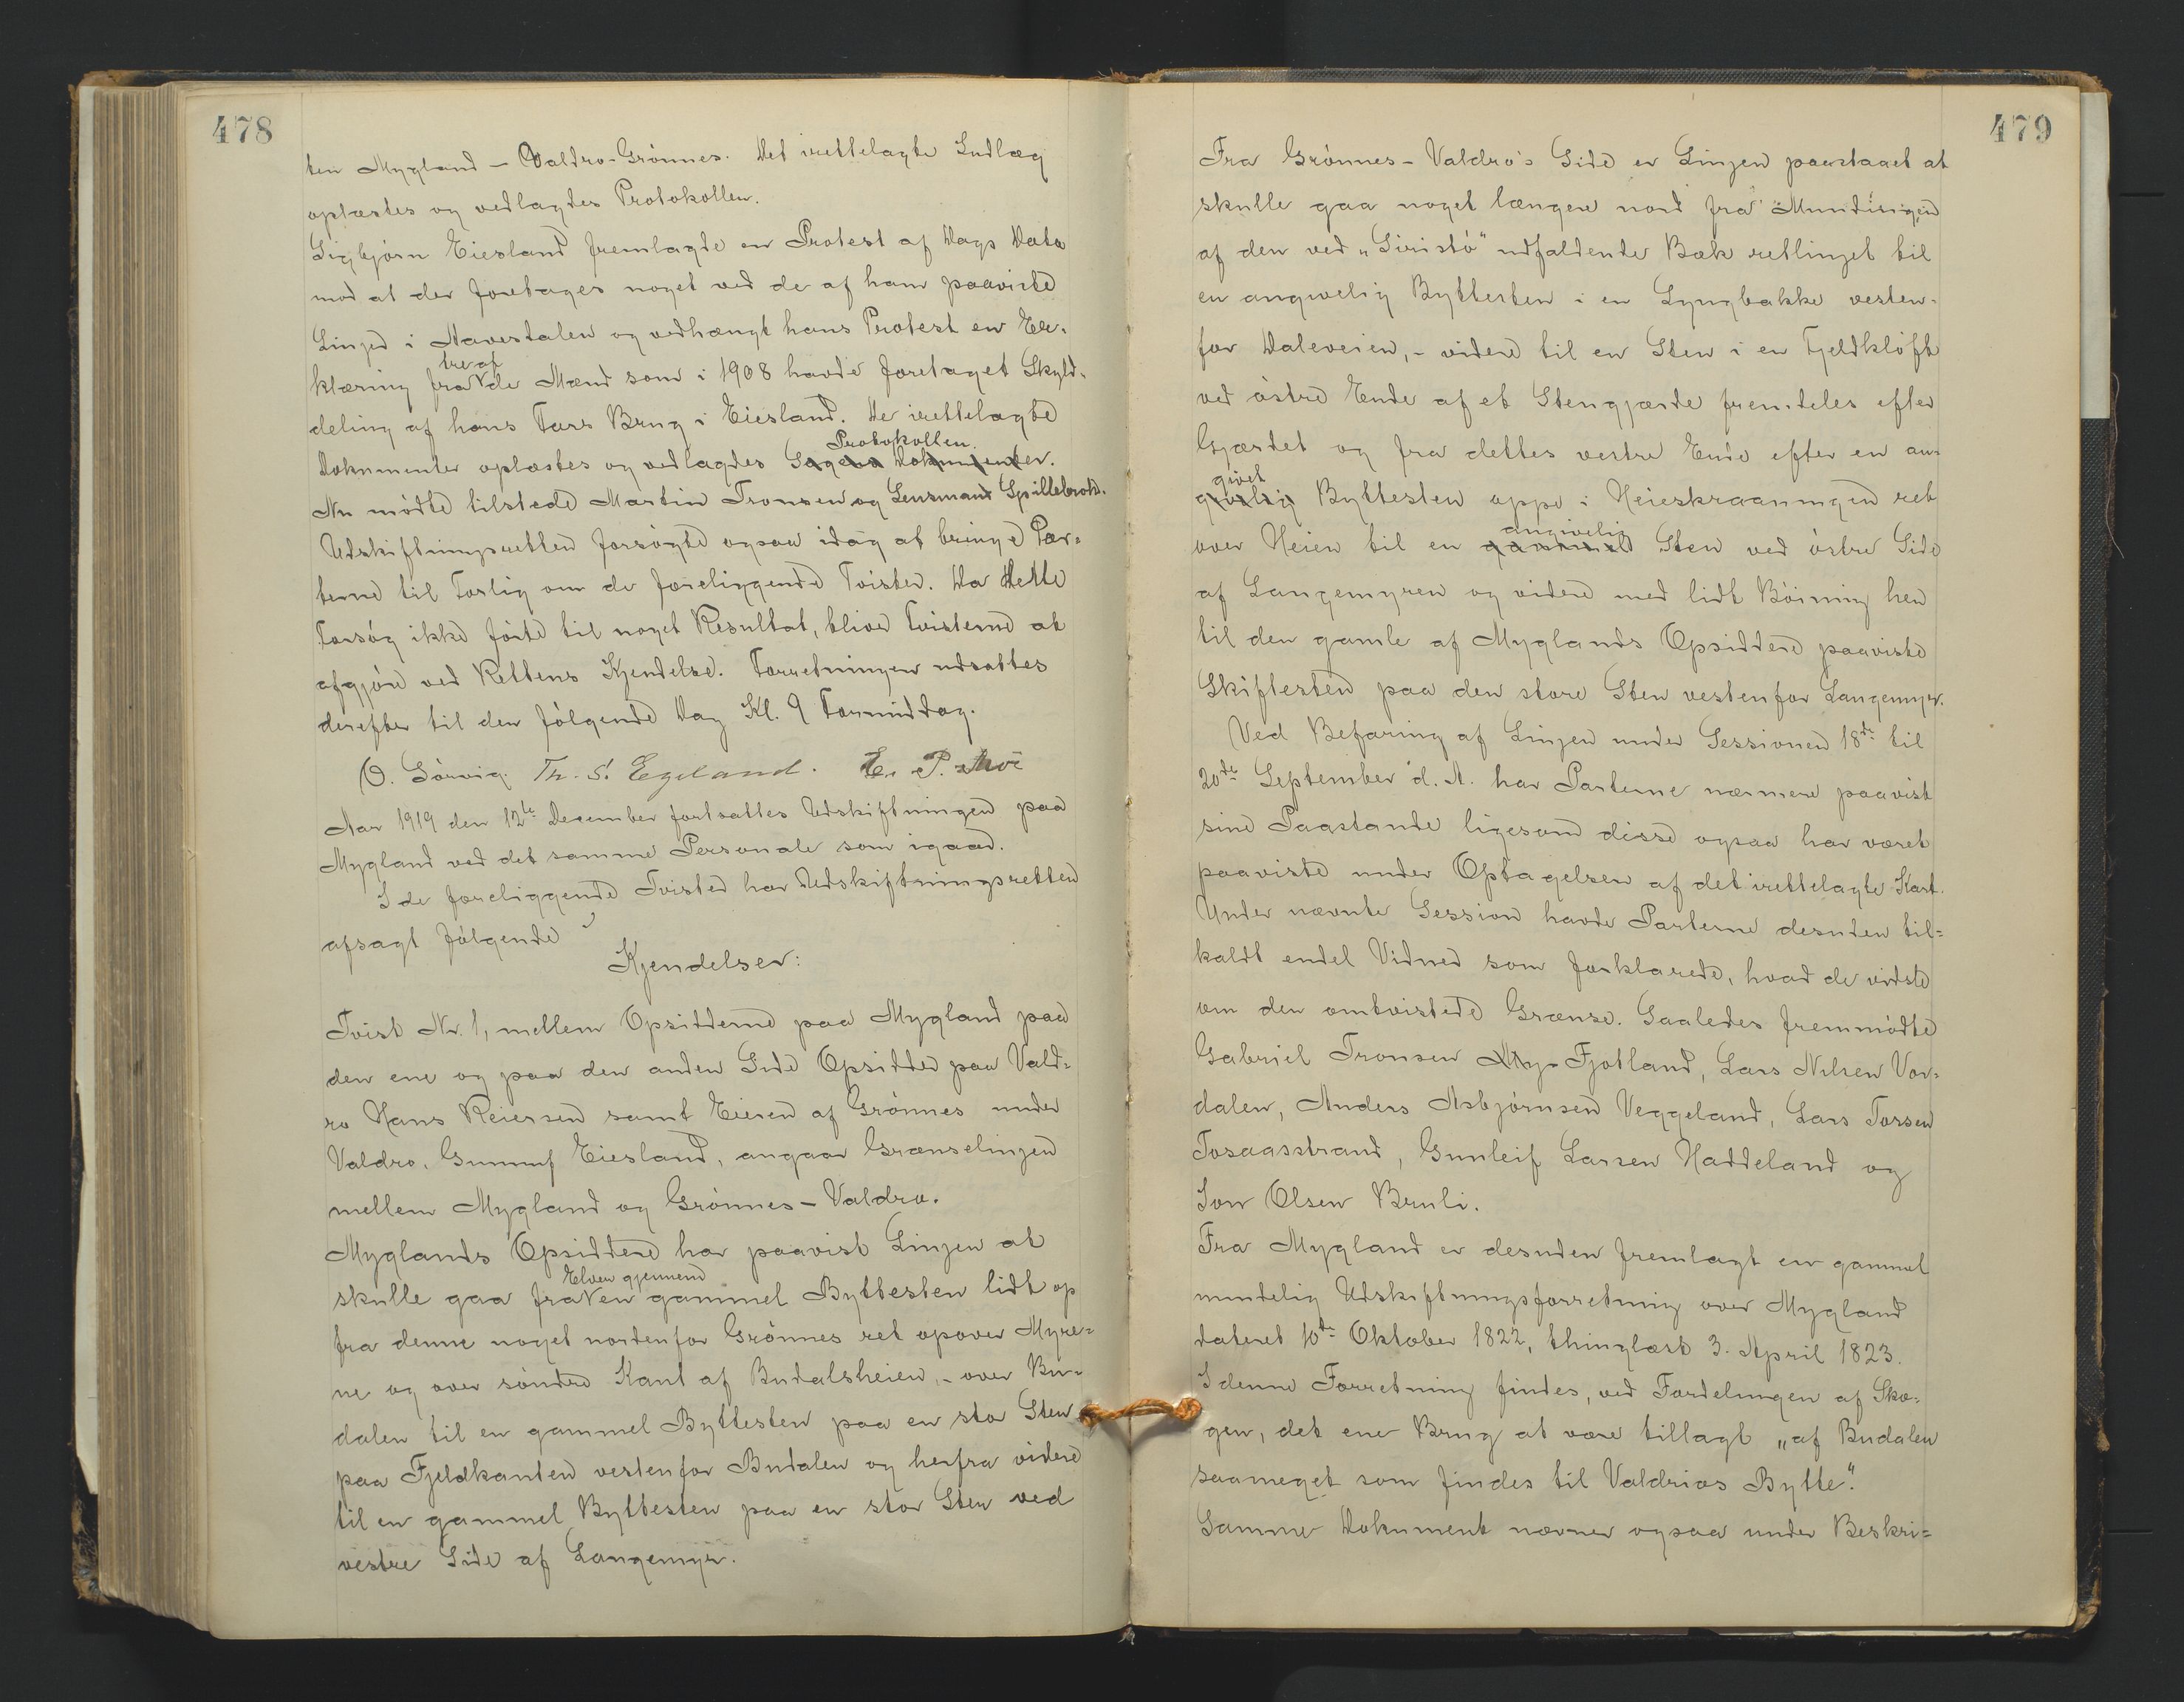 478
ten Mygland - Valdro-Grönnes. Det irettelagte Indlæg
oplæstes og vedlagdes Protokollen.
Sigbjörn Eiesland fremlagde en Protest af Dags Dato
mod at der foretages noget ved de af ham paaviste
Linjer i Havestalen og vedhængt hans Protest en Er-
klæring fra tre af de Mænd som i 1908 havde foretaget Skyld-
deling af hans Fars Brug i Eiesland. De irettelagte
Protokollen.
Dokumenter oplæstes og vedlagdes Sagens Dokumenter.
Nu mödte tilstede Martin Tronsen og Lensmand Spillebrok.
Udskiftningsretten forsögte ogsaa idag at bringe Par-
terne til Forlig om de foreliggende Tvister. Da dette
Forsög ikke förte til noget Resultat, bliver Tvisterne at
afgjöre ved Rettens Kjendelse. Forretningen udsattes
derefter til den fölgende Dag Kl. 9 Formiddag.
O. Sörvig. Th. S. Egeland. E. P. Moi
Aar 1919 den 12te December fortsattes Udskiftningen paa
Mygland ved det samme Personale som igaar.
I de foreliggende Tvister har Udskiftningsretten
afsagt fölgende
Kjendelser:
Tvist Nr. 1, mellem Opsidderne paa Mygland paa
den ene og paa den anden Side Opsidder paa Vald-
ro Hans Reiersen samt Eieren af Grönnes under
Valdro, Gunnuf Eiesland, angaar Grænselinjen
mellem Mygland og Grönnes - Valdro.
Myglands Opsiddere har paavist Linjen at
Elven gjennem
skulle gaa fra en gammel Byttesten lidt op
fra denne noget nordenfor Grönnes ret opover Myre-
ne og over söndre Kant af Budalsheien, - over Bu-
dalen til en gammel Byttesten paa en stor Sten
paa Fjeldkanten vestenfor Budalen og herfra videre
til en gammel Byttesten paa en stor Sten ved
vestre Side af Langemyr.
479
Fra Grönnes - Valdro's Side er Linjen paastaaet at
skulle gaa noget længere nord fra Mundingen
af den ved "Siristö" udfaldende Bæk retlinjet til
en angivelig Byttesten i en Lyngbakke vesten-
for Daleveien, - videre til en Sten i en Fjeldklöft
ved östre Ende af et Stengjærde fremdeles efter
Gjærdet og fra dettes vestre Ende efter en an-
givet
givelig Byttesten oppe i Heieskraaningen ret
angivelig
over Heien til en gammel Sten ved östre Side
af Langemyren og videre med lidt Böining hen
til den gamle af Myglands Opsiddere paaviste
Skiftesten paa den store Sten vestenfor Langemyr.
Ved Befaring af Linjen under Sessionen 18de til
20de September d. A. har Parterne nærmere paavist
sine Paastande ligesom disse ogsaa har været
paaviste under Optagelsen af det irettelagte Kart.
Under nævnte Session havde Parterne desuden til-
kaldt endel Vidner som forklarede, hvad de vidste
om den omtvistede Grænse. Saaledes fremmödte
Gabriel Tronsen My-Fjotland, Lars Nilsen Vor-
dalen, Anders Asbjörnsen Veggeland, Lars Torsen
Tosaasstrand, Gunleif Larsen Haddeland og
Jon Olsen Bruli.
Fra Mygland er desuden fremlagt en gammel
mindelig Udskiftningsforretning over Mygland
dateret 10de Oktober 1822, thinglæst 3. April 1823.
I denne Forretning findes, ved Fordelingen af Sko-
gen, det ene Brug at være tillagt "af Budalen
saameget som findes til Valdrios Bytte".
Samme Dokument nævner ogsaa under Beskri-